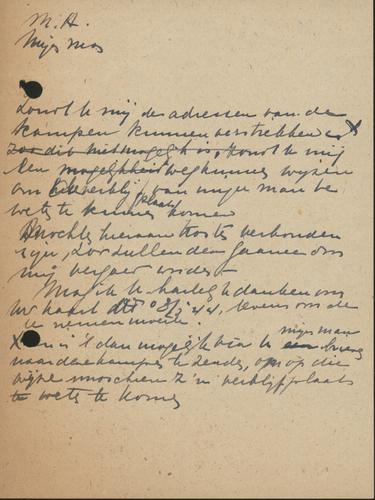 M. H.
Mijn man
Zoudt U mij de adressen van de
kampen kunnen verstrekken X
Zoo dit niet mogelijk is, zoudt U mij
een mogelijkheid weg kunnen wijzen
om verblijfplaats van mijn man te
weten te kunnen komen
Mochten hieraan kosten verbonden
zijn, zoo zullen deze gaarne door
mij vergoed worden
Mag ik U hartelijk danken om
Uw kaart dd 08/5 44, tevens om de
te nemen moeite.
mijn man
X en is 't dan mogelijk via U een brief
naar deze kampen te zenden, om op die
wijze misschien z'n verblijfplaats
te weten te komen